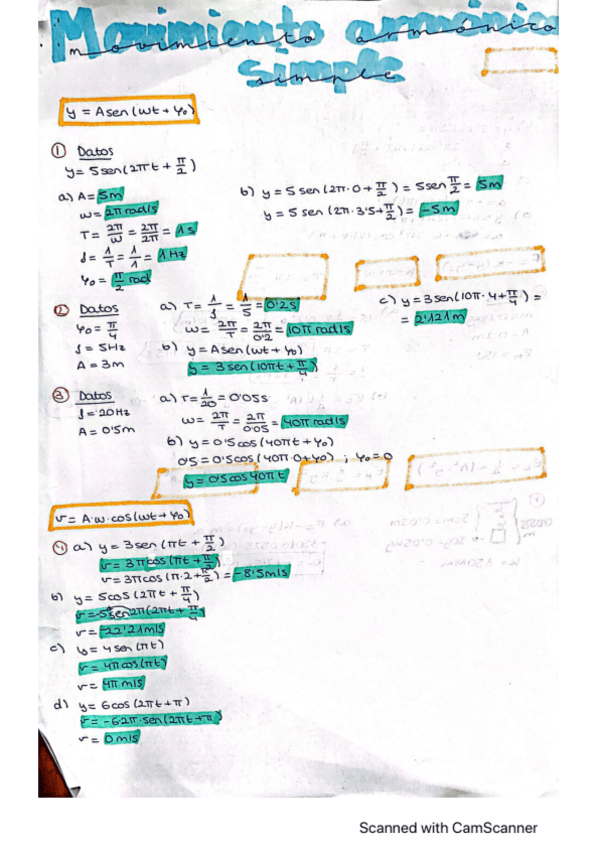 Movimiento armónico
simple
y = A sen (ωt + φ₀)
① Datos
y = 5 sen (2πt + π/2)
a) A = 5m
ω = 2π rad/s
T = 2π/ω = 2π/2π = 1s
f = 1/T = 1/1 = 1Hz
φ₀ = π/2 rad
b) y = 5 sen (2π·0 + π/2) = 5sen π/2 = 5m
y = 5 sen (2π·3'5 + π/2) = -5m
② Datos
φ₀ = π/4
f = 5Hz
A = 3m
a) T = 1/f = 1/5 = 0'2s
ω = 2π/T = 2π/0'2 = 10π rad/s
b) y = A sen (ωt + φ₀)
y = 3 sen (10πt + π/4)
c) y = 3 sen (10π·4 + π/4) =
= 2'121m
③ Datos
f = 20Hz
A = 0'5m
a) T = 1/20 = 0'05s
ω = 2π/T = 2π/0'05 = 40π rad/s
b) y = 0'5 cos (40πt + φ₀)
0'5 = 0'5 cos (40π·0 + φ₀) ; φ₀ = 0
y = 0'5 cos 40πt
v = A·ω·cos (ωt + φ₀)
④ a) y = 3 sen (πt + π/2)
v = 3π cos (πt + π/2)
v = 3π cos (π·2 + π/2) = -8'5m/s
b) y = 5 cos (2πt + π/4)
v = -5 sen 2π (2πt + π/4)
v = -22'21m/s
c) y = 4 sen (πt)
v = 4π cos (πt)
v = 4π m/s
d) y = 6 cos (2πt + π)
v = -6·2π·sen (2πt + π
v = 0m/s
Scanned with CamScanner